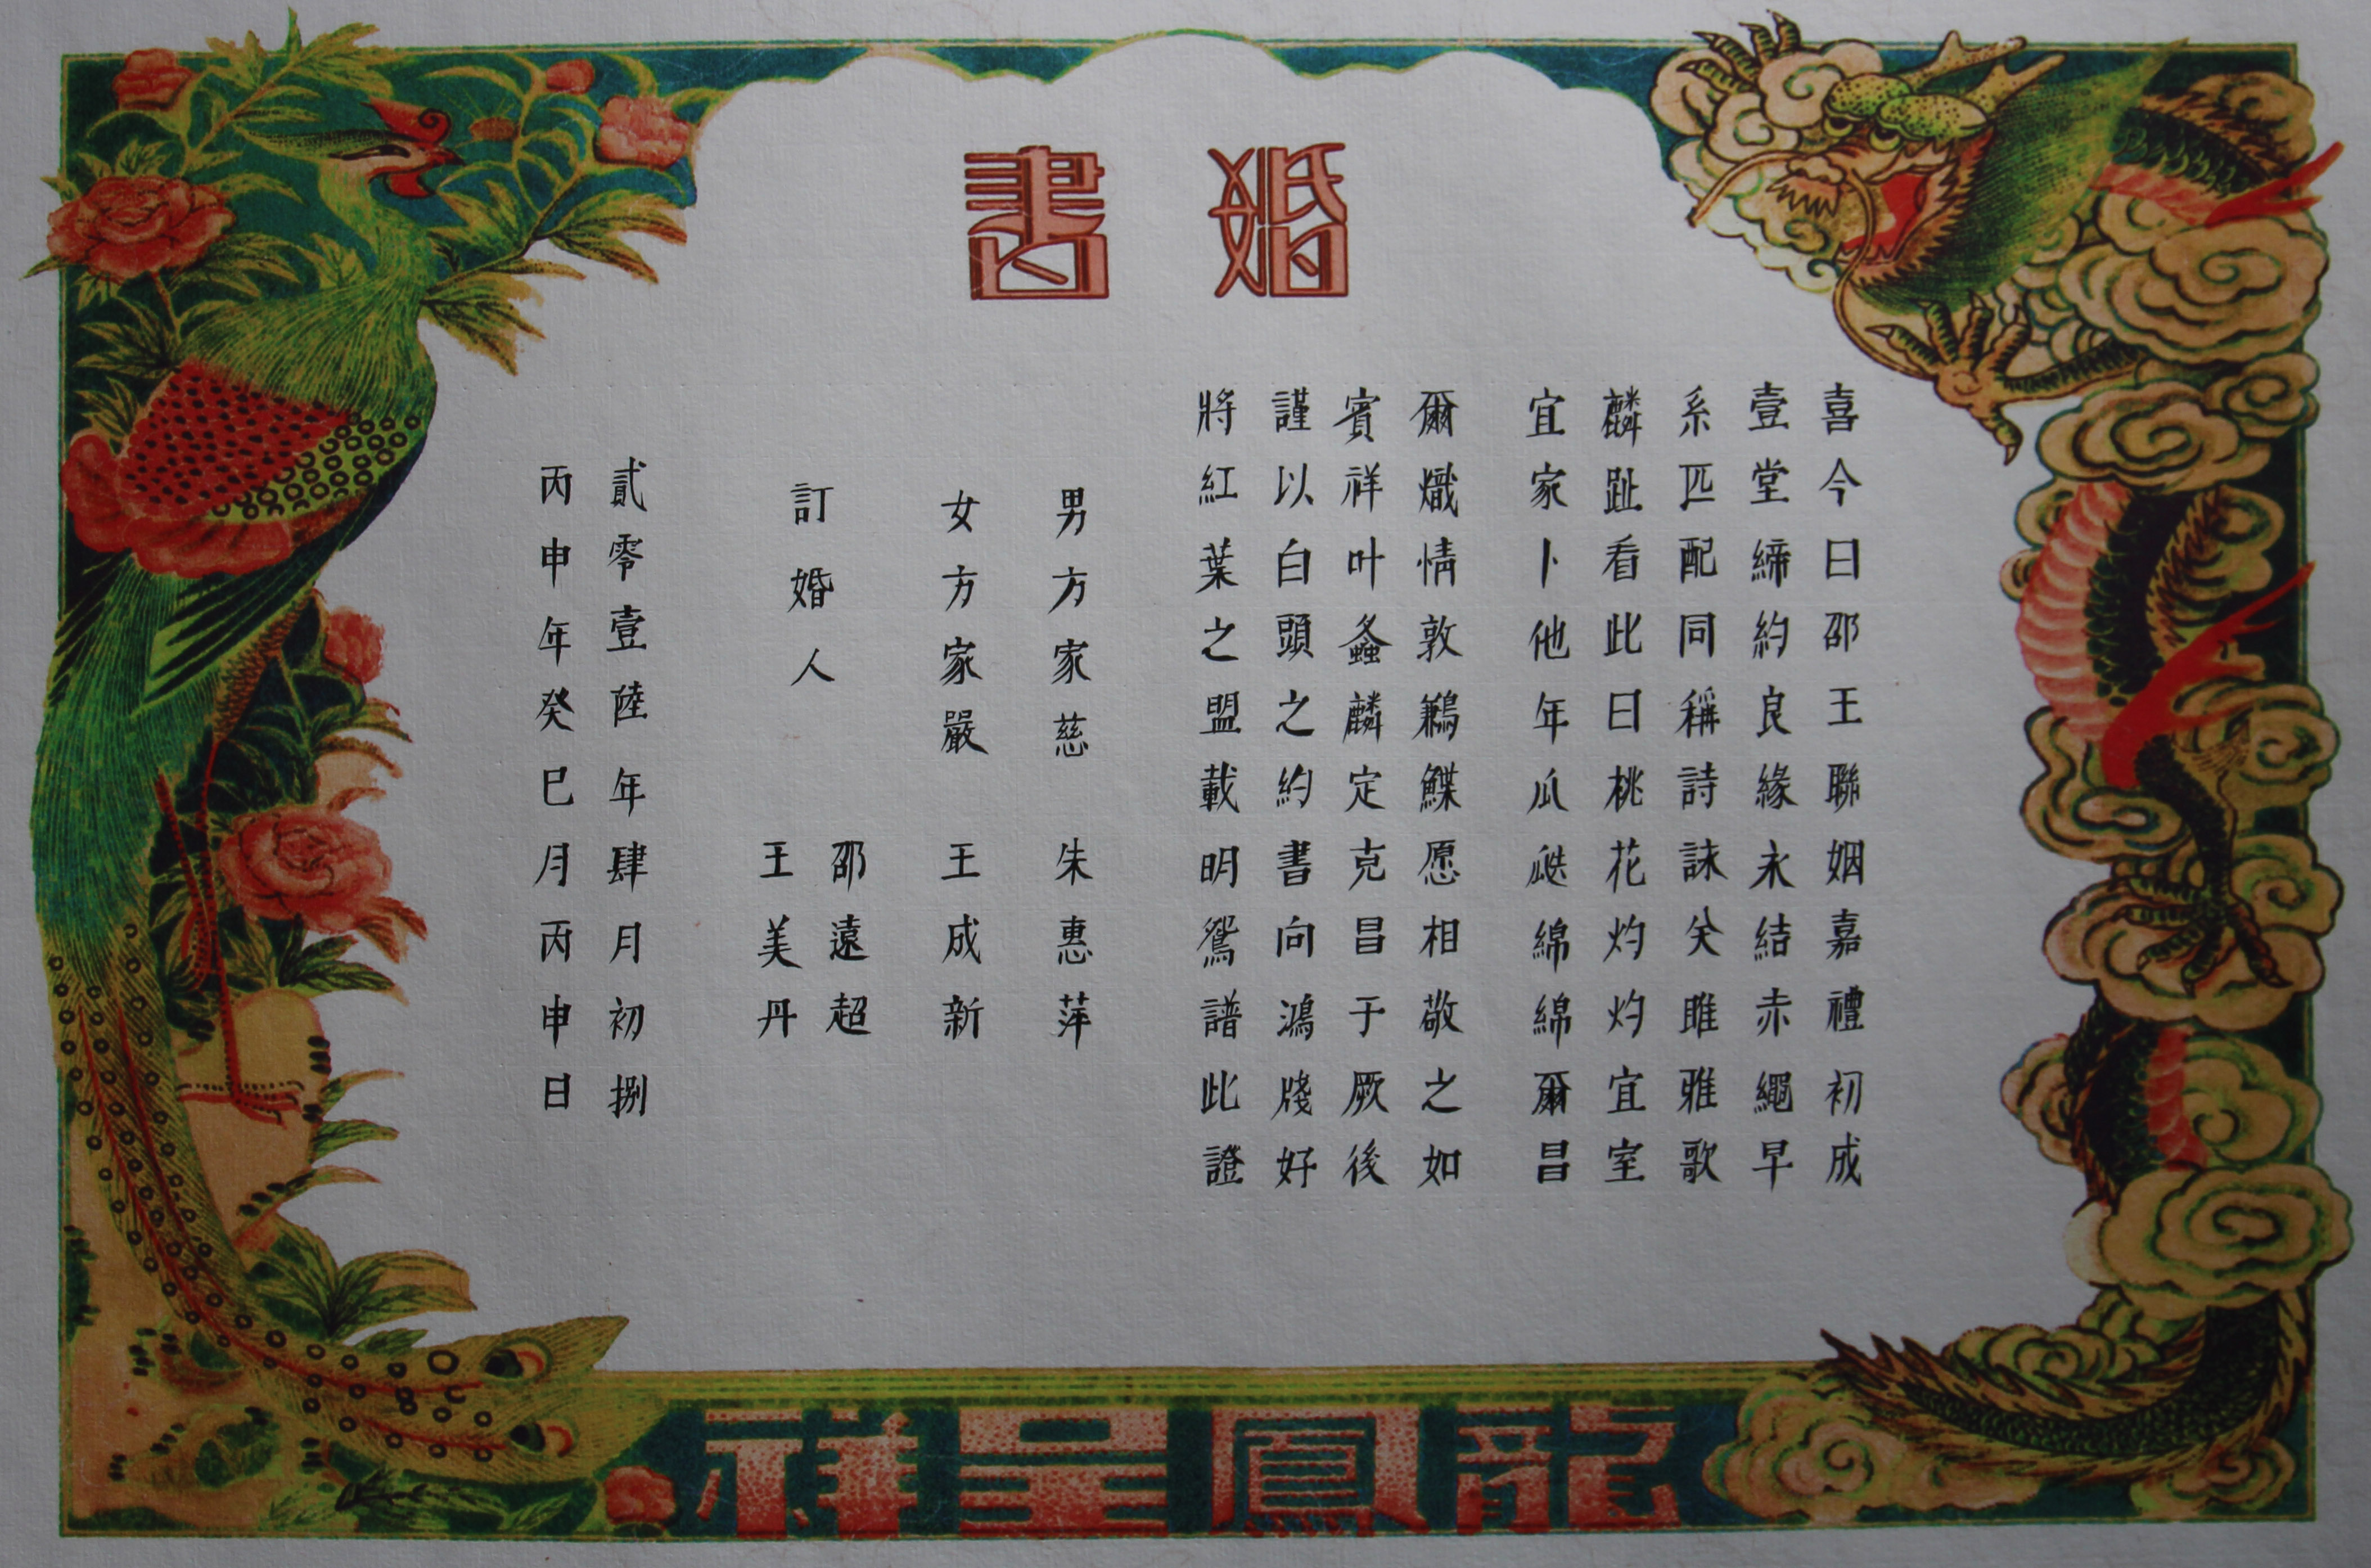 婚書
喜今日邵王聯姻嘉禮初成
壹堂締約良緣永結赤繩早
系匹配同稱詩詠关雎雅歌
麟趾看此日桃花灼灼宜室
宜家卜他年瓜瓞綿綿爾昌
爾熾情敦鶼鰈愿相敬之如
賓祥叶螽麟定克昌于厥後
謹以白頭之約書向鴻牋好
將紅葉之盟載明鴛譜此證
男方家慈 朱惠萍
女方家嚴 王成新
訂婚人 邵遠超
王美丹
貳零壹陸年肆月初捌
丙申年癸巳月丙申日
龍鳳呈祥